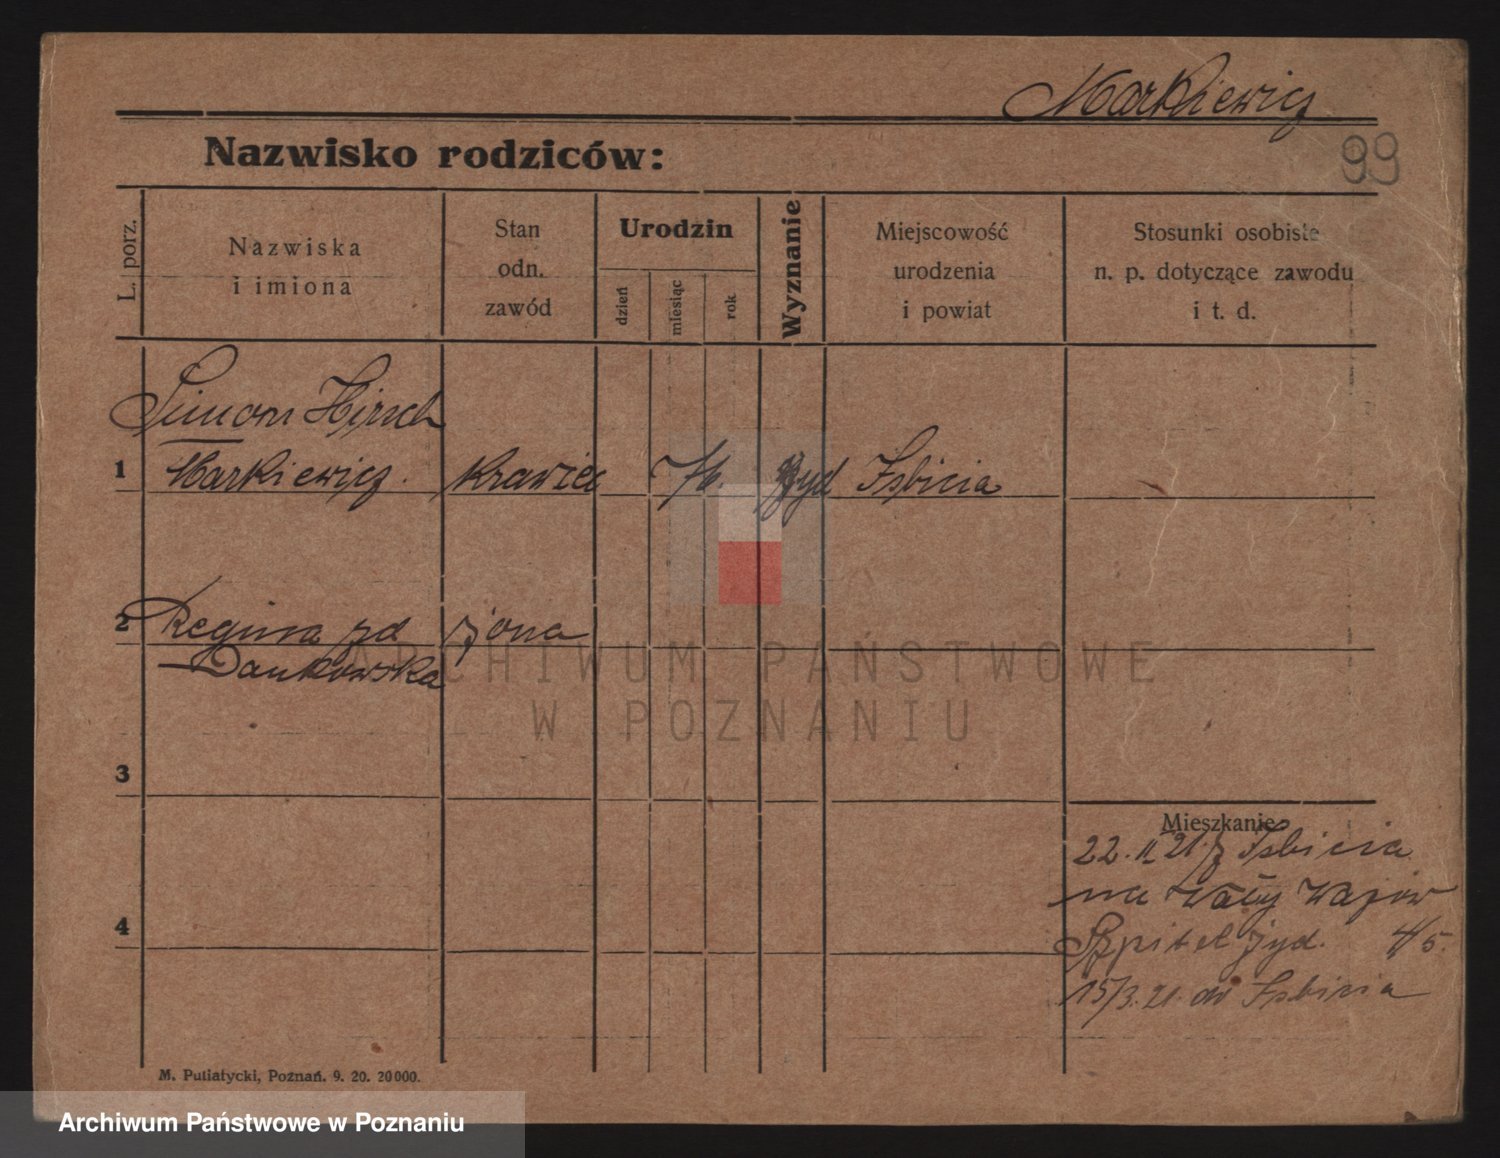 Markiewicz
99
Nazwisko rodziców:
L. porz.
Nazwiska
i imiona
Stan
odn.
zawód
Urodzin
dzień
miesiąc
rok
Wyznanie
Miejscowość
urodzenia
i powiat
Stosunki osobiste
n. p. dotyczące zawodu
i t. d.
Simon Hirsch
1 Markiewicz. Krawiec żyd Isbicia
2 Regina zd żona
Dankowska
ARCHIWUM PAŃSTWOWE
W POZNANIU
3
Mieszkanie
22. II 21. z Isbicia
na Wały
4
Szpital żyd. 4/5.
15/3. 21. do Isbicia
M. Putiatycki, Poznań. 9. 20. 20000.
Archiwum Państwowe w Poznaniu